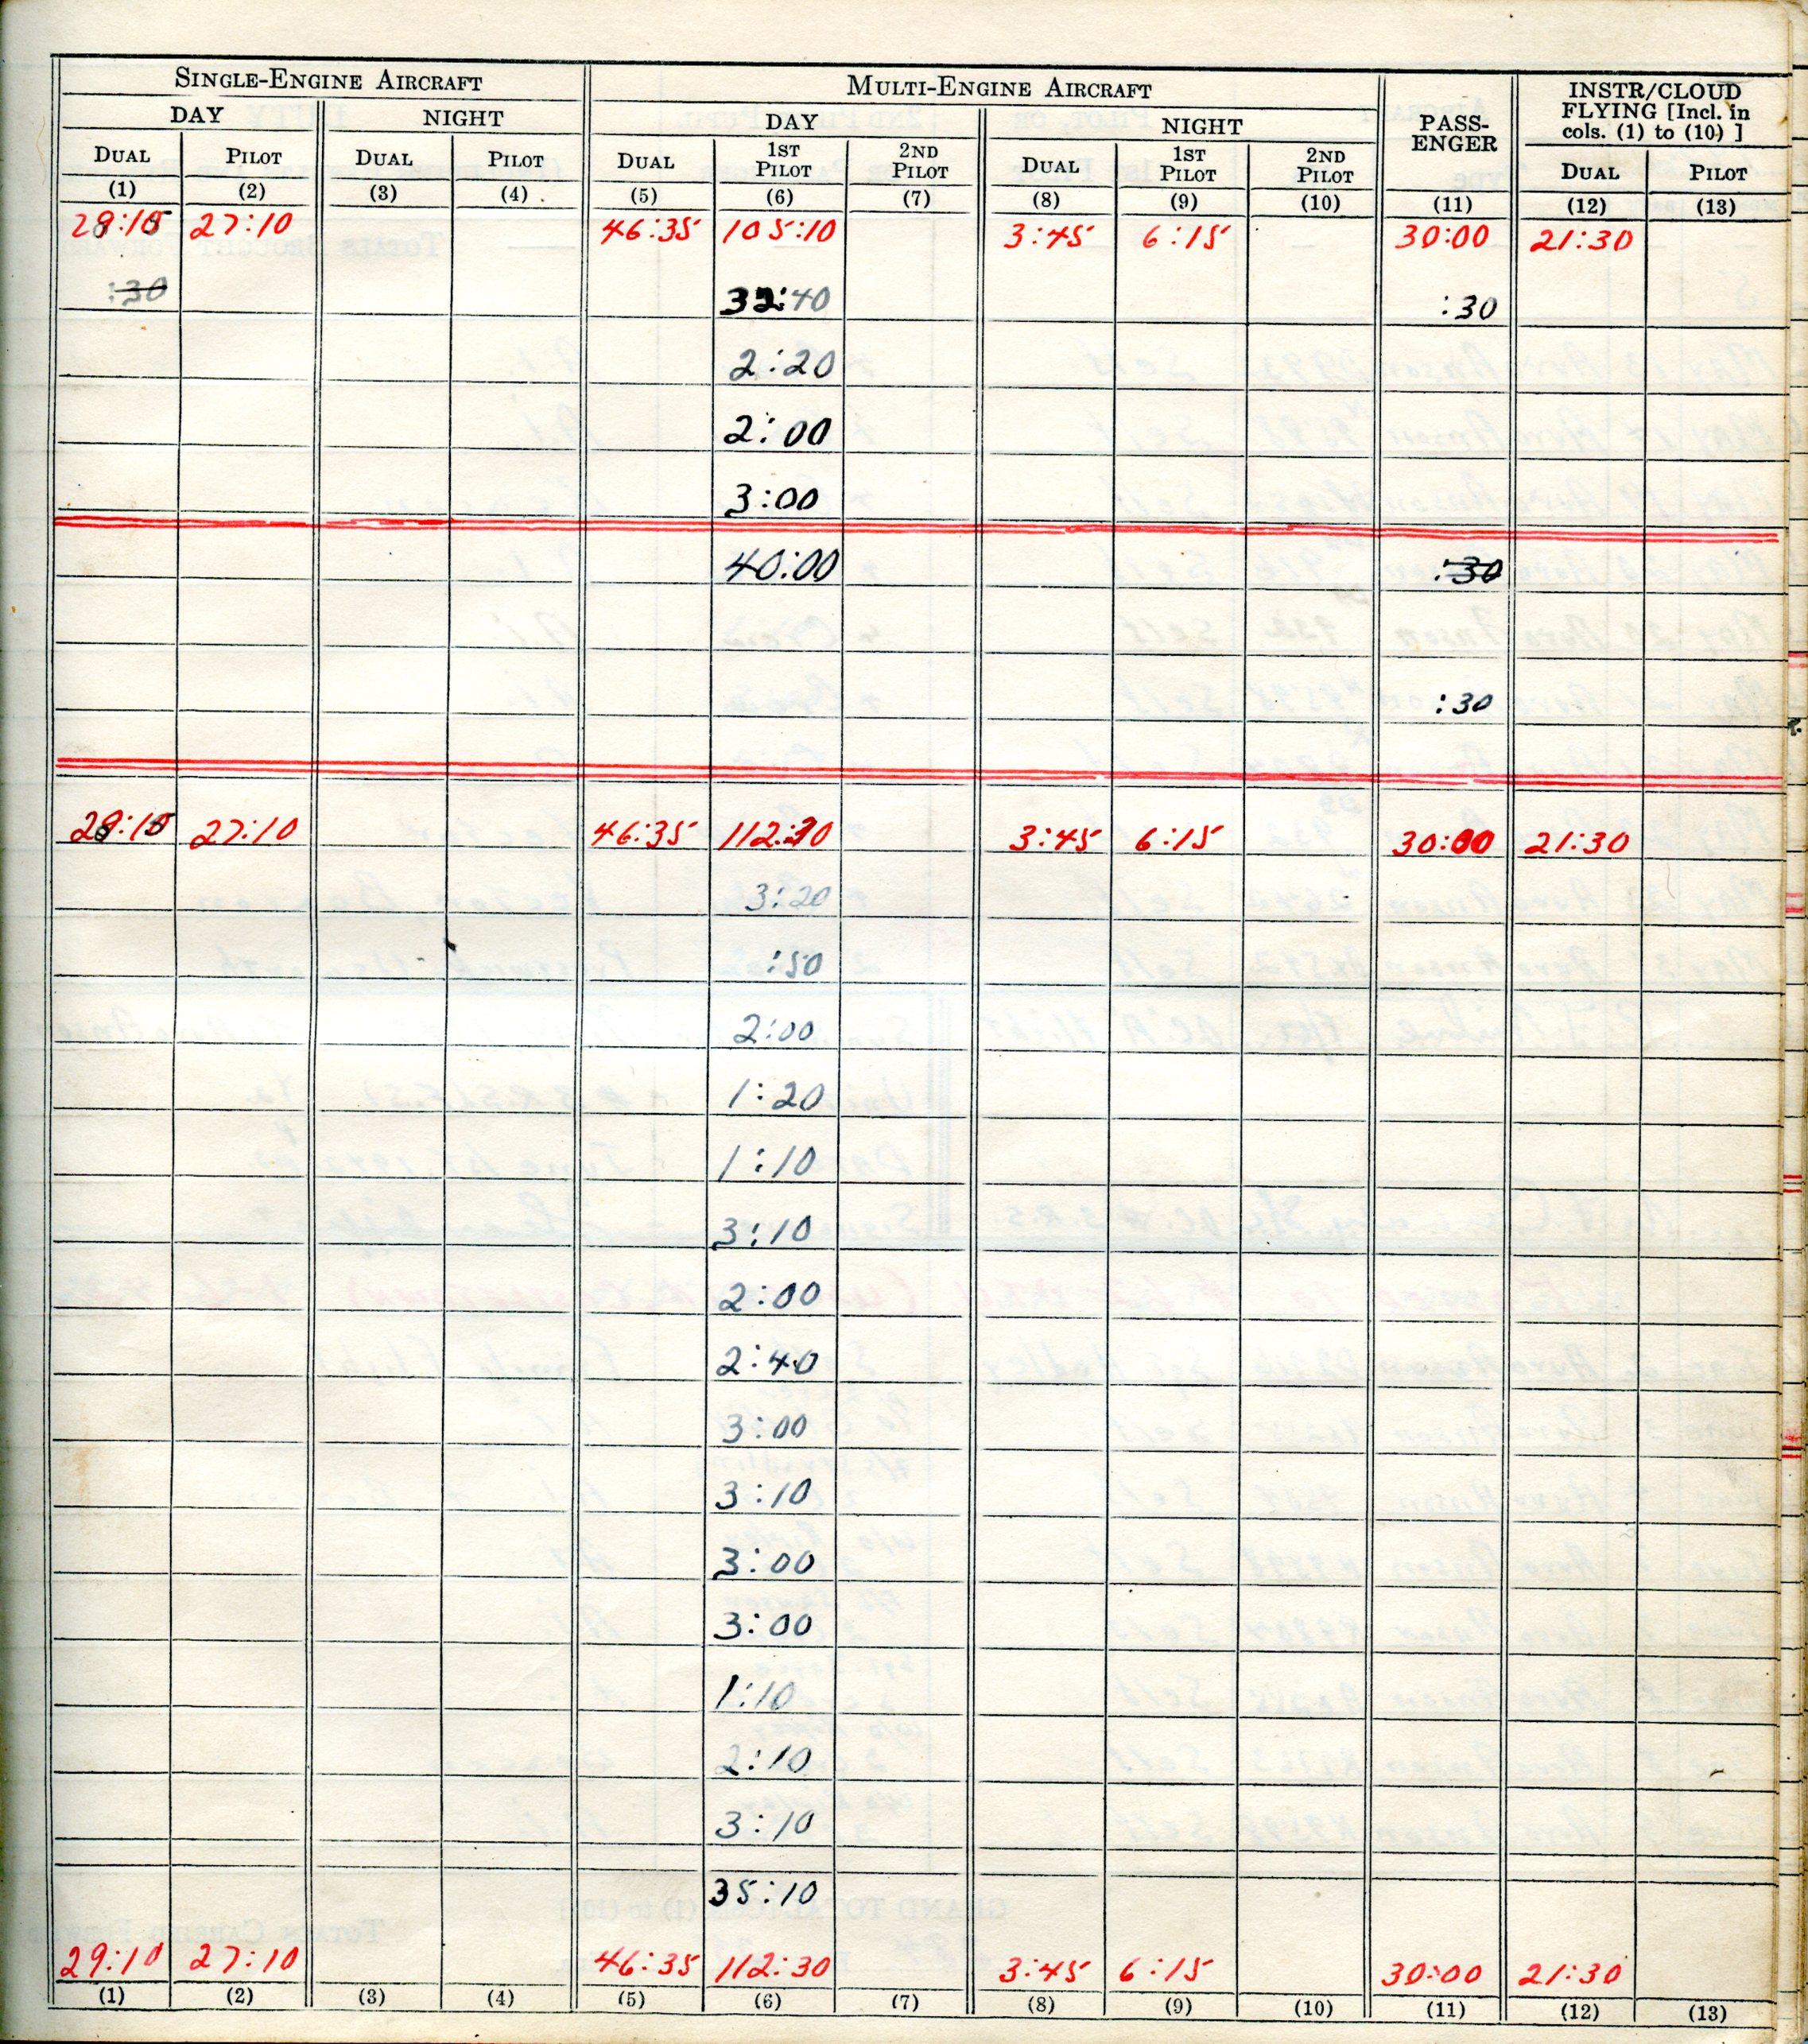 SINGLE-ENGINE AIRCRAFT MULTI-ENGINE AIRCRAFT PASS-ENGER INSTR/CLOUD FLYING [Incl. in cols. (1) to (10) ]
DAY NIGHT DAY NIGHT
DUAL PILOT DUAL PILOT DUAL 1ST PILOT 2ND PILOT DUAL 1ST PILOT 2ND PILOT DUAL PILOT
(1) (2) (3) (4) (5) (6) (7) (8) (9) (10) (11) (12) (13)
27:10 46:35 105:10 3:45 6:15 30:00 21:30
:30 32:40 :30
2:20
2:00
3:00
40:00 :30
:30
27:10 46:35 112:30 3:45 6:15 30:00 21:30
3:20
:50
2:00
1:20
1:10
3:10
2:00
2:40
3:00
3:10
3:00
3:00
1:10
2:10
3:10
35:10
29:10 27:10 46:35 112:30 3:45 6:15 30:00 21:30
(1) (2) (3) (4) (5) (6) (7) (8) (9) (10) (11) (12) (13)